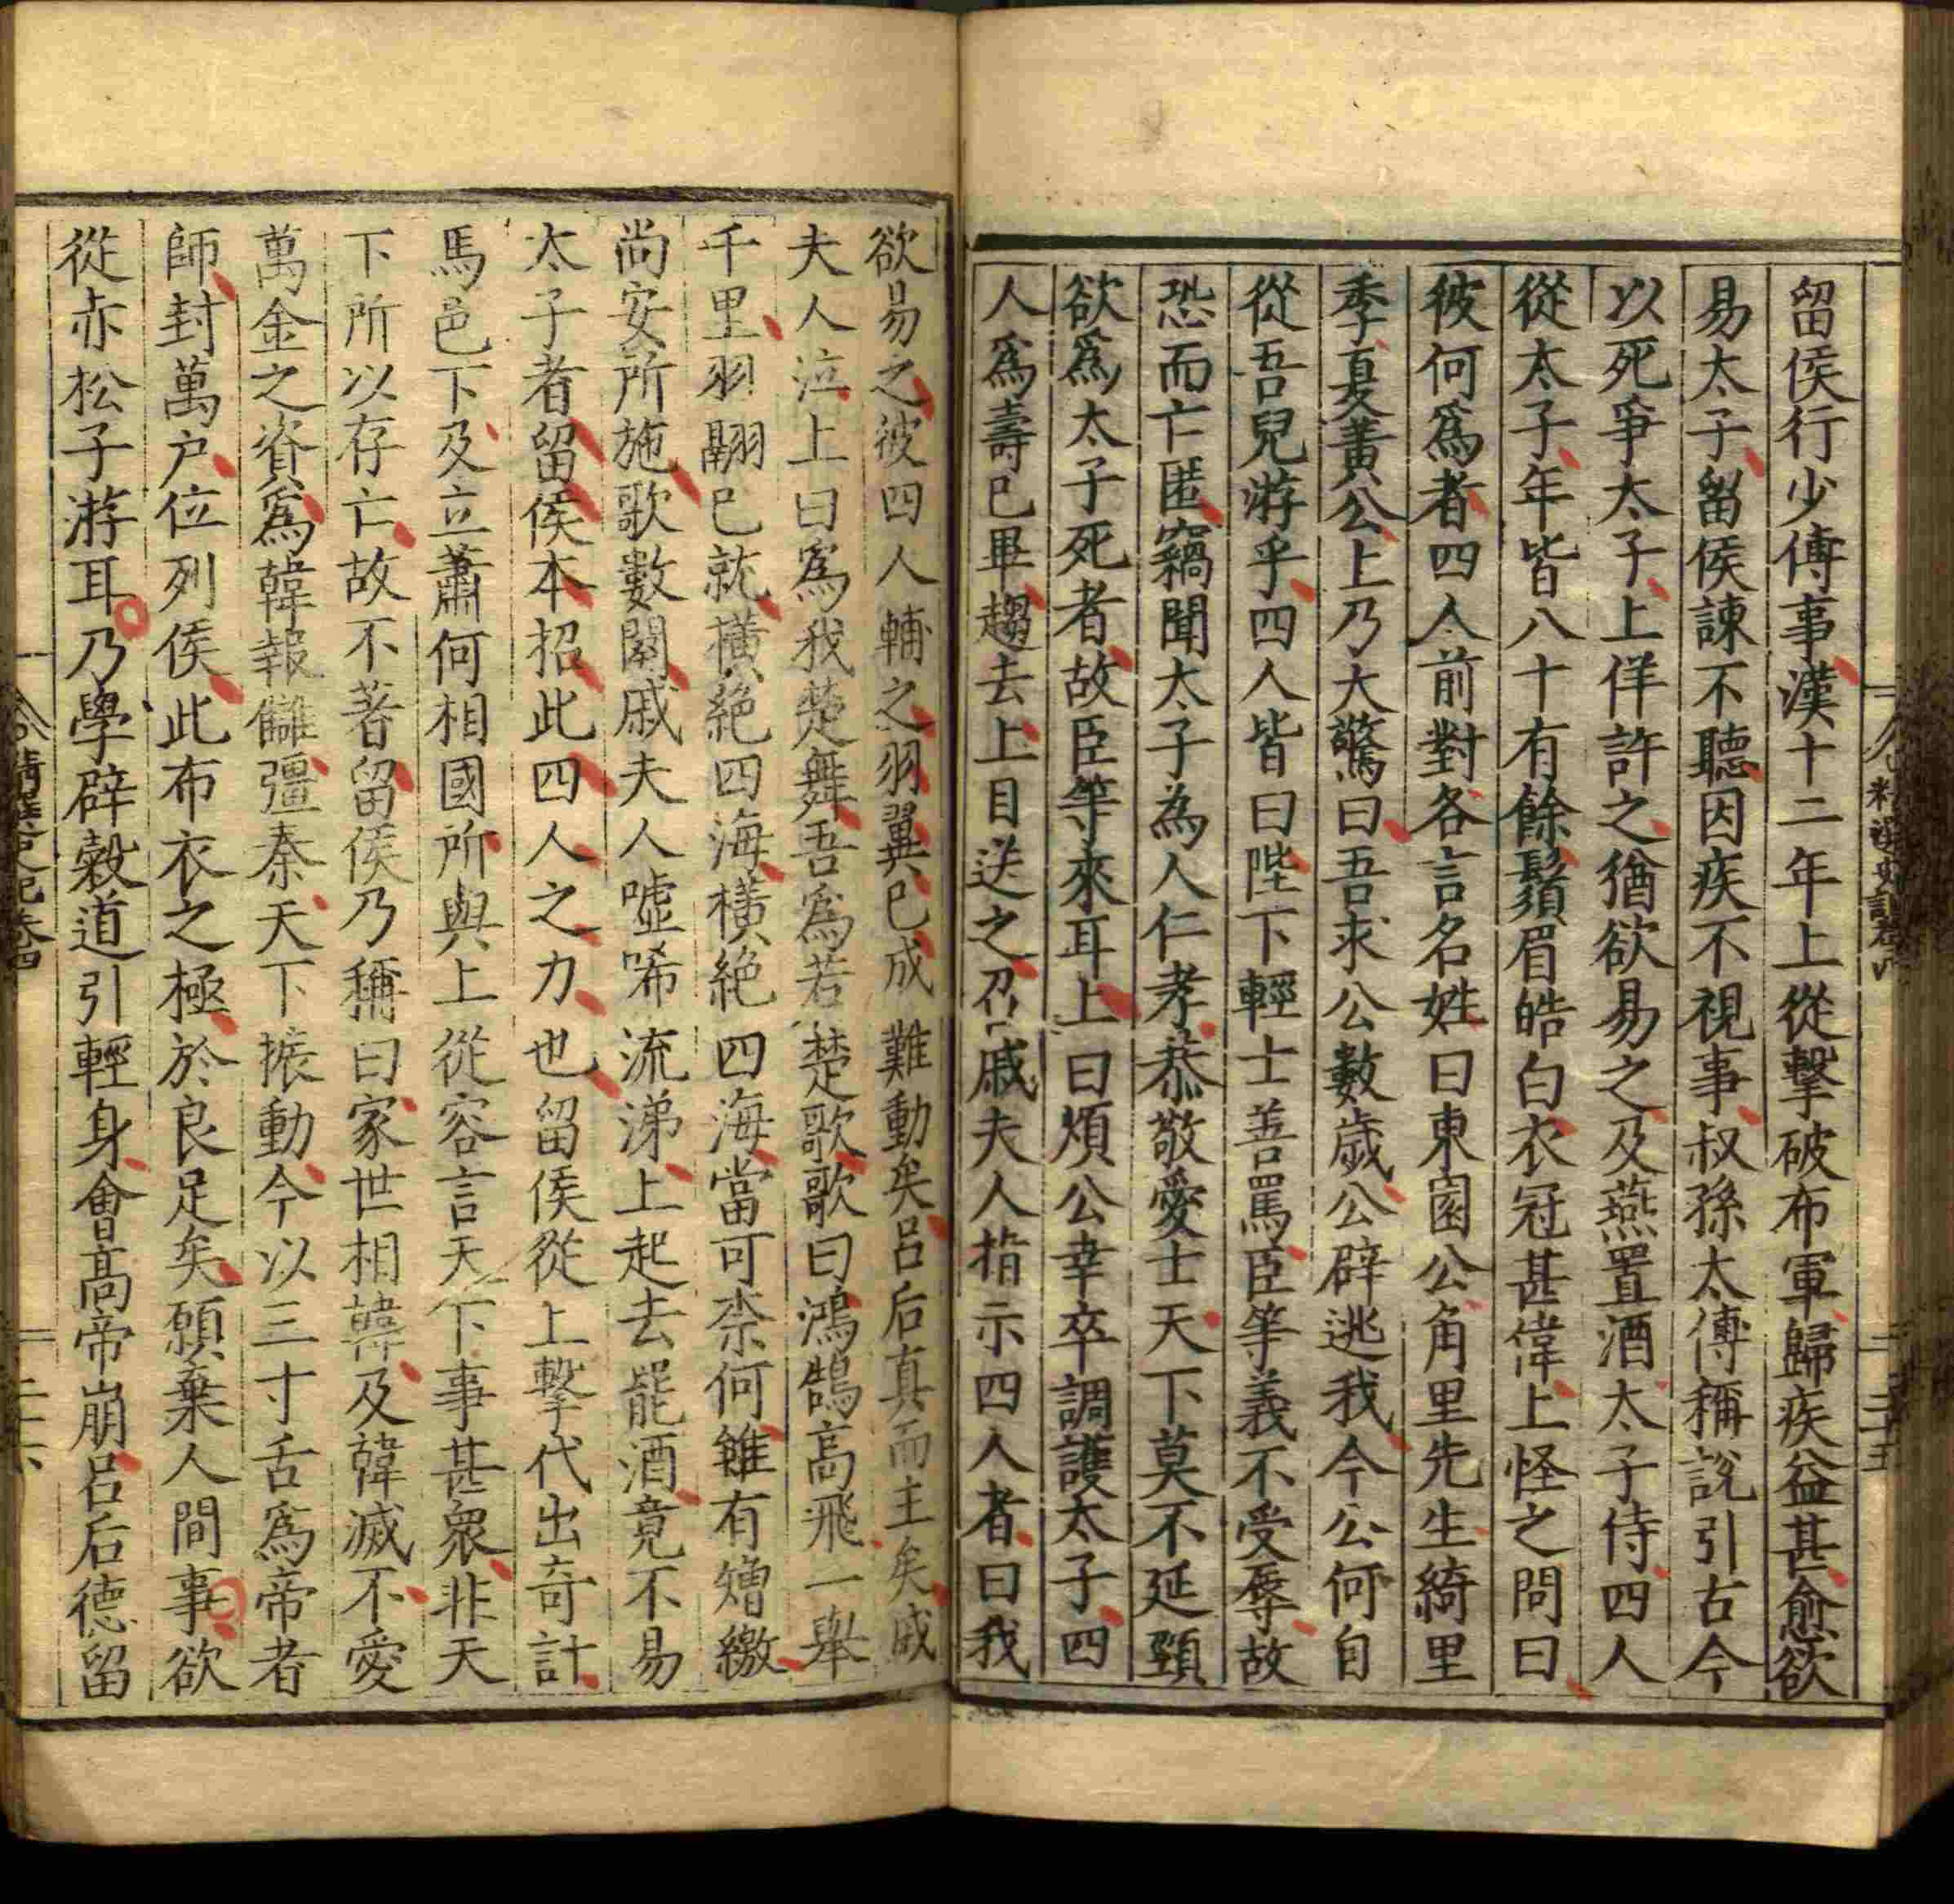 留侯行少傅事漢十二年上從擊破布軍歸疾益甚愈欲
易太子留侯諫不聽因疾不視事叔孫太傅稱說引古今
以死爭太子上佯許之猶欲易之及燕置酒太子侍四人
從太子年皆八十有餘鬚眉皓白衣冠甚偉上怪之問曰
彼何爲者四人前對各言名姓曰東園公角里先生綺里
季夏黃公上乃大驚曰吾求公數歲公辟逃我今公何自
從吾兒游乎四人皆曰陛下輕士善罵臣等義不受辱故
恐而亡匿竊聞太子為人仁孝恭敬愛士天下莫不延頸
欲爲太子死者故臣等來耳上曰煩公幸卒調護太子四
人爲壽已畢趨去上目送之召戚夫人指示四人者曰我
欲易之彼四人輔之羽翼已成難動矣呂后真而主矣戚
夫人泣上曰爲我楚舞吾爲若楚歌歌曰鴻鵠高飛一舉
千里羽翮已就橫絕四海橫絕四海當可奈何雖有矰繳
尚安所施歌數闋戚夫人噓唏流涕上起去罷酒竟不易
太子者留侯本招此四人之力也留侯從上擊代出奇計
馬邑下及立蕭何相國所與上從容言天下事甚衆非天
下所以存亡故不著留侯乃稱曰家世相韓及韓滅不愛
萬金之資爲韓報讎彊秦天下振動今以三寸舌爲帝者
師封萬户位列侯此布衣之極於良足矣願棄人間事欲
從赤松子游耳乃學辟穀道引輕身會高帝崩呂后德留
精選史記卷四
二十五
二十六